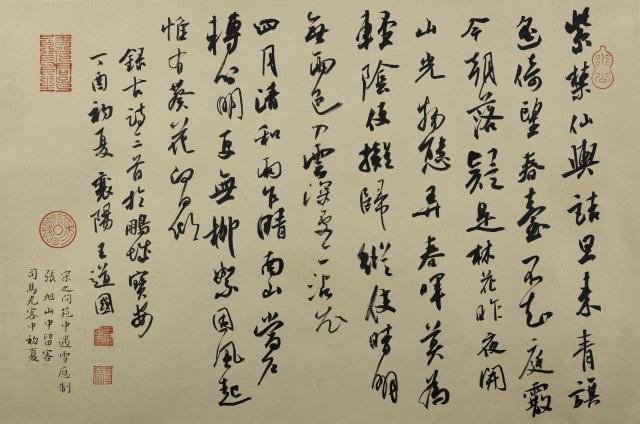 紫禁仙輿詰旦来青旂
遥倚望春臺不知庭霰
今朝落疑是林花昨夜開
山光物態弄春暉莫為
輕陰便擬歸縱使晴明
無雨色入雲深處亦沾衣
四月清和雨乍晴南山當户
轉分明更無柳絮因風起
惟有葵花向日傾
録古詩三首於鵬城寶安
丁酉初夏襄陽王道國
宋之問苑中遇雪應制
張旭山中留客
司馬光客中初夏